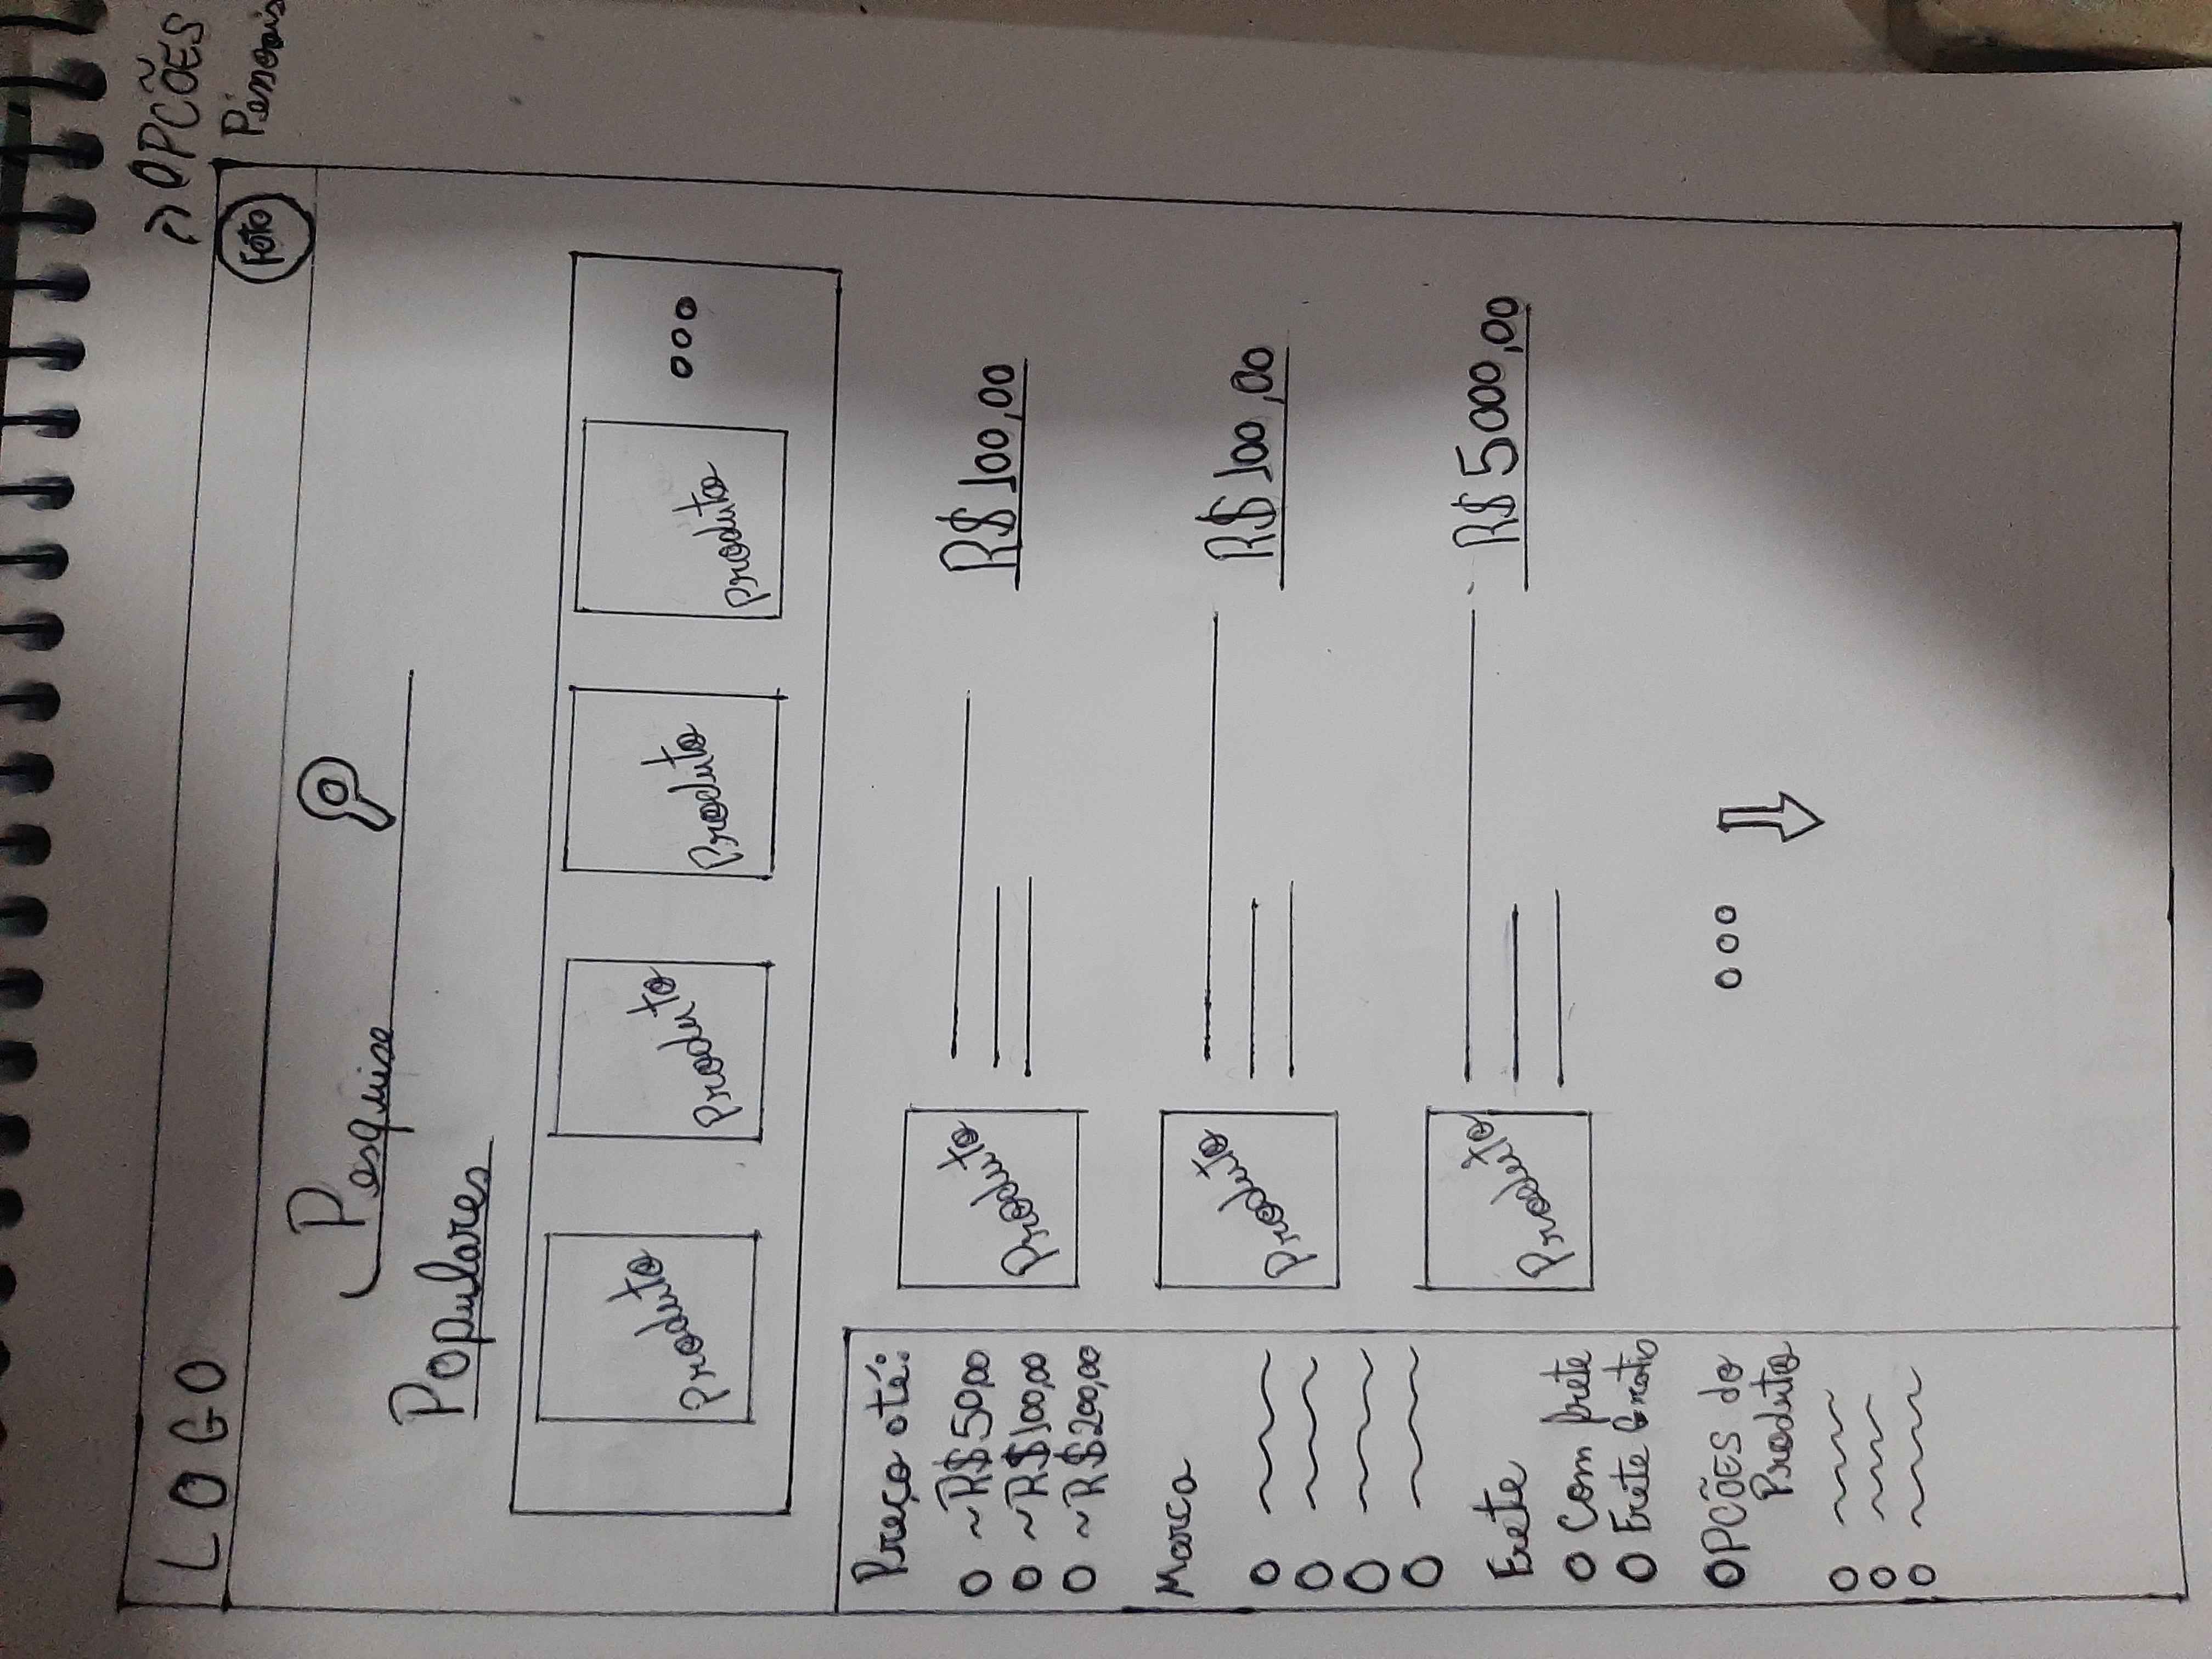 LOGO
OPCÕES
Pessoais
Foto
Pesquisa
Populares
Produto
Produto
Produto
Produto
Preço até:
~R$50,00
~R$100,00
~R$200,00
Marca
Frete
Com frete
Frete Gratis
OPCÕES do
Produto
Produto
R$100,00
Produto
R$100,00
Produto
R$5000,00